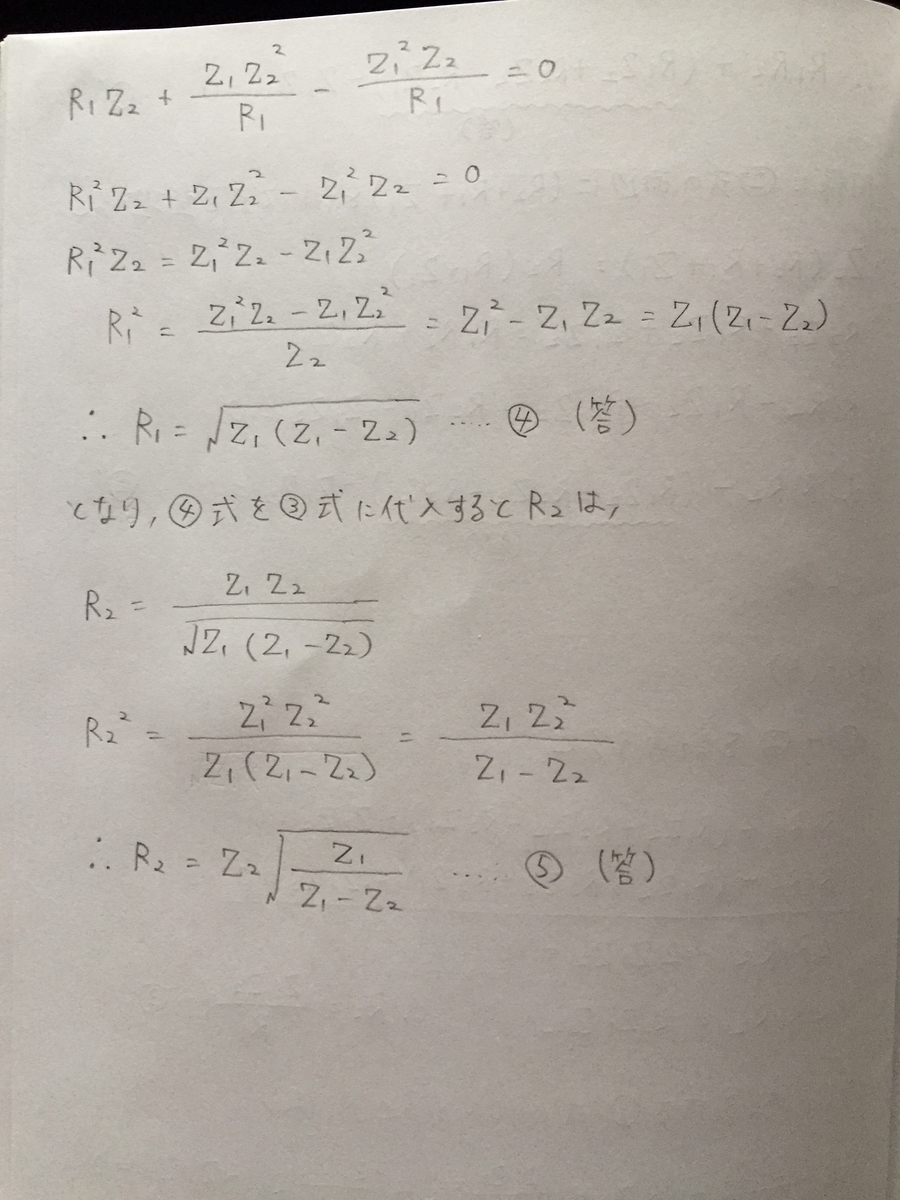 R₁Z₂ + Z₁Z₂²/R₁ - Z₁²Z₂/R₁ = 0
R₁²Z₂ + Z₁Z₂² - Z₁²Z₂ = 0
R₁²Z₂ = Z₁²Z₂ - Z₁Z₂²
R₁² = (Z₁²Z₂ - Z₁Z₂²)/Z₂ = Z₁² - Z₁Z₂ = Z₁(Z₁-Z₂)
∴ R₁ = √(Z₁(Z₁-Z₂)) ..... ④ (答)
となり, ④式を③式に代入するとR₂は,
R₂ = Z₁Z₂/√(Z₁(Z₁-Z₂))
R₂² = Z₁²Z₂²/(Z₁(Z₁-Z₂)) = Z₁Z₂²/(Z₁-Z₂)
∴ R₂ = Z₂√(Z₁/(Z₁-Z₂)) ..... ⑤ (答)